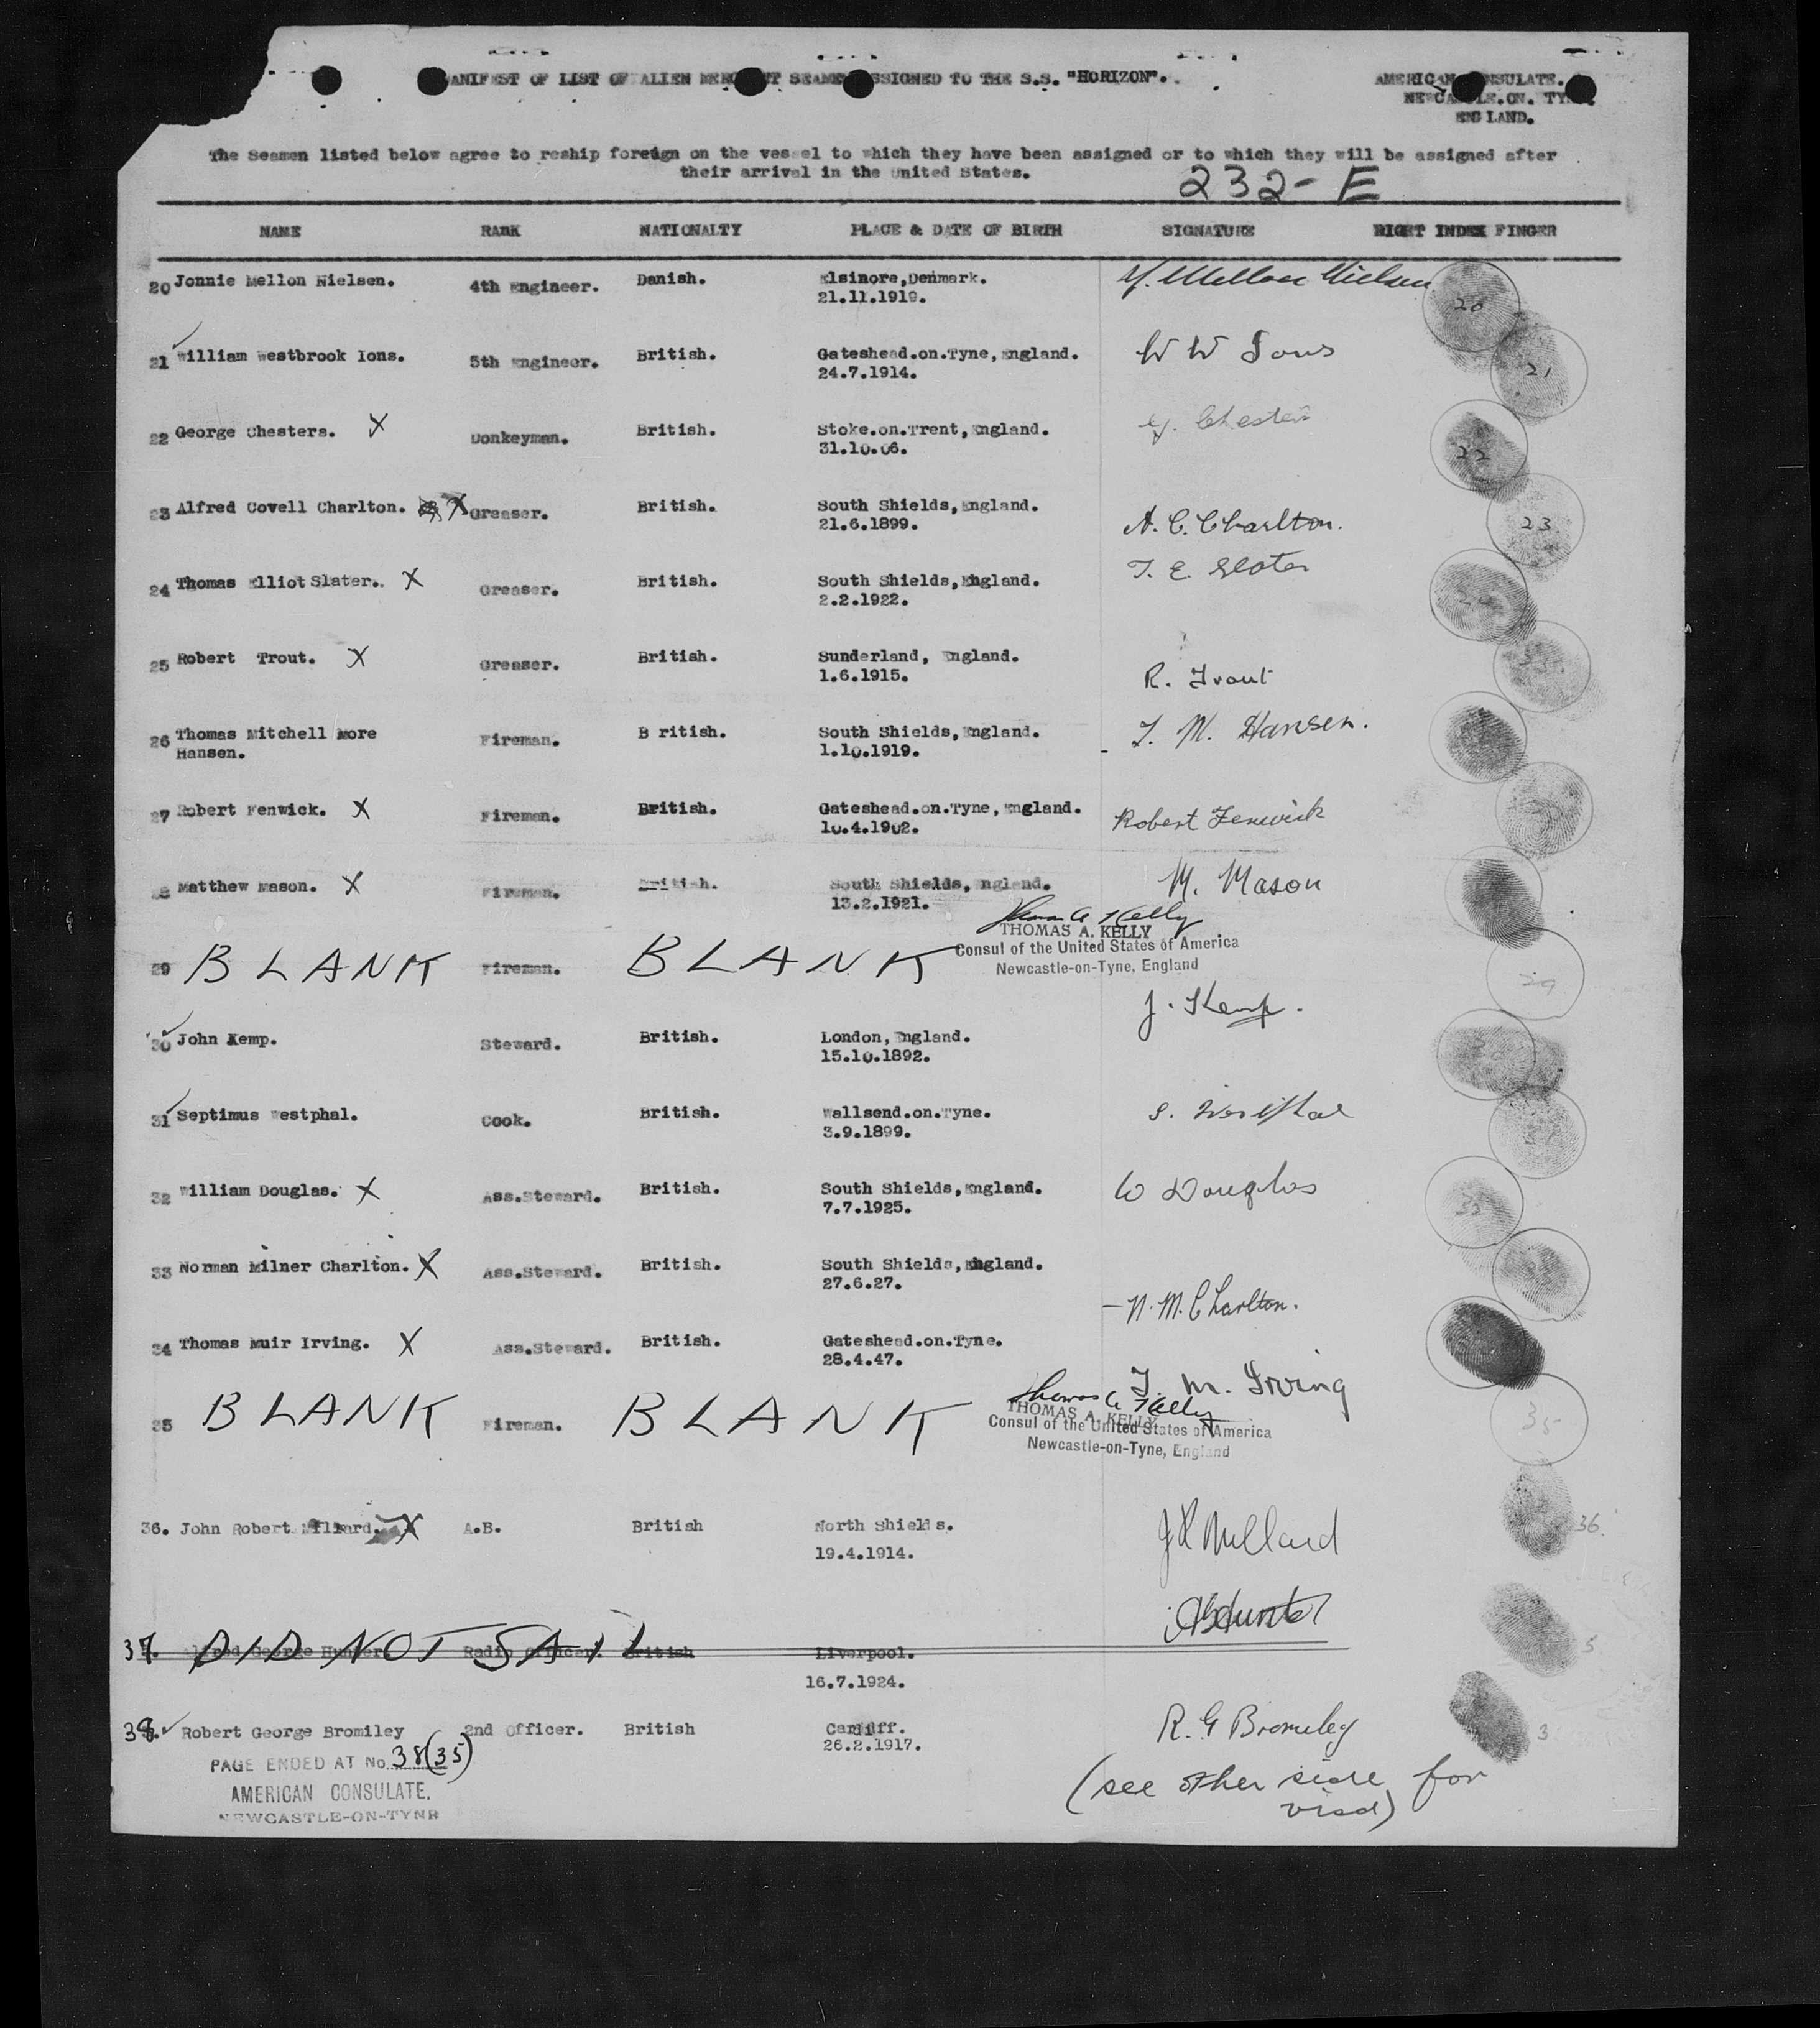 MANIFEST OF LIST OF ALIEN MERCHANT SEAMEN ASSIGNED TO THE S.S. "HORIZON".
AMERICAN CONSULATE.
NEWCASTLE.ON. TYNE
ENGLAND.
The Seamen listed below agree to reship foreign on the vessel to which they have been assigned or to which they will be assigned after
their arrival in the United States.
232-E
NAME RANK NATIONALTY PLACE & DATE OF BIRTH SIGNATURE RIGHT INDEX FINGER
20 Jonnie Mellon Nielsen. 4th Engineer. Danish. Elsinore,Denmark. Mellon Nielsen 20
21.11.1919.
21 William Westbrook Ions. 5th Engineer. British. Gateshead.on.Tyne, England. W W Ions 21
24.7.1914.
22 George Chesters. X Donkeyman. British. Stoke.on.Trent, England. G. Chesters 22
31.10.06.
23 Alfred Covell Charlton. X Greaser. British. South Shields, England. A. C. Charlton. 23
21.6.1899.
24 Thomas Elliot Slater. X Greaser. British. South Shields, England. T. E. Slater 24
2.2.1922.
25 Robert Trout. X Greaser. British. Sunderland, England. R. Trout
1.6.1915.
26 Thomas Mitchell More Fireman. B ritish. South Shields, England. T. M. Hansen.
Hansen. 1.10.1919.
27 Robert Fenwick. X Fireman. British. Gateshead.on.Tyne, England. Robert Fenwick
10.4.1902.
28 Matthew Mason. X Fireman. British. South Shields, England. M. Mason
13.2.1921.
Thomas A Kelly
THOMAS A. KELLY
Consul of the United States of America
Newcastle-on-Tyne, England
29 BLANK Fireman. BLANK 29
30 John Kemp. Steward. British. London, England. J. Kemp. 30
15.10.1892.
31 Septimus Westphal. Cook. British. Wallsend.on.Tyne. S. Westphal
3.9.1899.
32 William Douglas. X Ass.Steward. British. South Shields, England. W Douglas
7.7.1925.
33 Norman Milner Charlton. X Ass.Steward. British. South Shields, England. N. M. Charlton.
27.6.27.
34 Thomas Muir Irving. X Ass.Steward. British. Gateshead.on.Tyne. T. M. Irving
28.4.47.
Thomas A Kelly
THOMAS A. KELLY
Consul of the United States of America
Newcastle-on-Tyne, England
35 BLANK Fireman. BLANK 35
36. John Robert Millard. X A.B. British North Shields. J R Millard 36.
19.4.1914.
37. Alfred George Hunter Radio Officer. British Liverpool. A G Hunter 5
DID NOT SAIL
16.7.1924.
38. Robert George Bromiley 2nd Officer. British Cardiff. R. G Bromiley 3
26.2.1917.
PAGE ENDED AT No. 38 (35)
AMERICAN CONSULATE,
NEWCASTLE-ON-TYNE
(see other side for
visa)